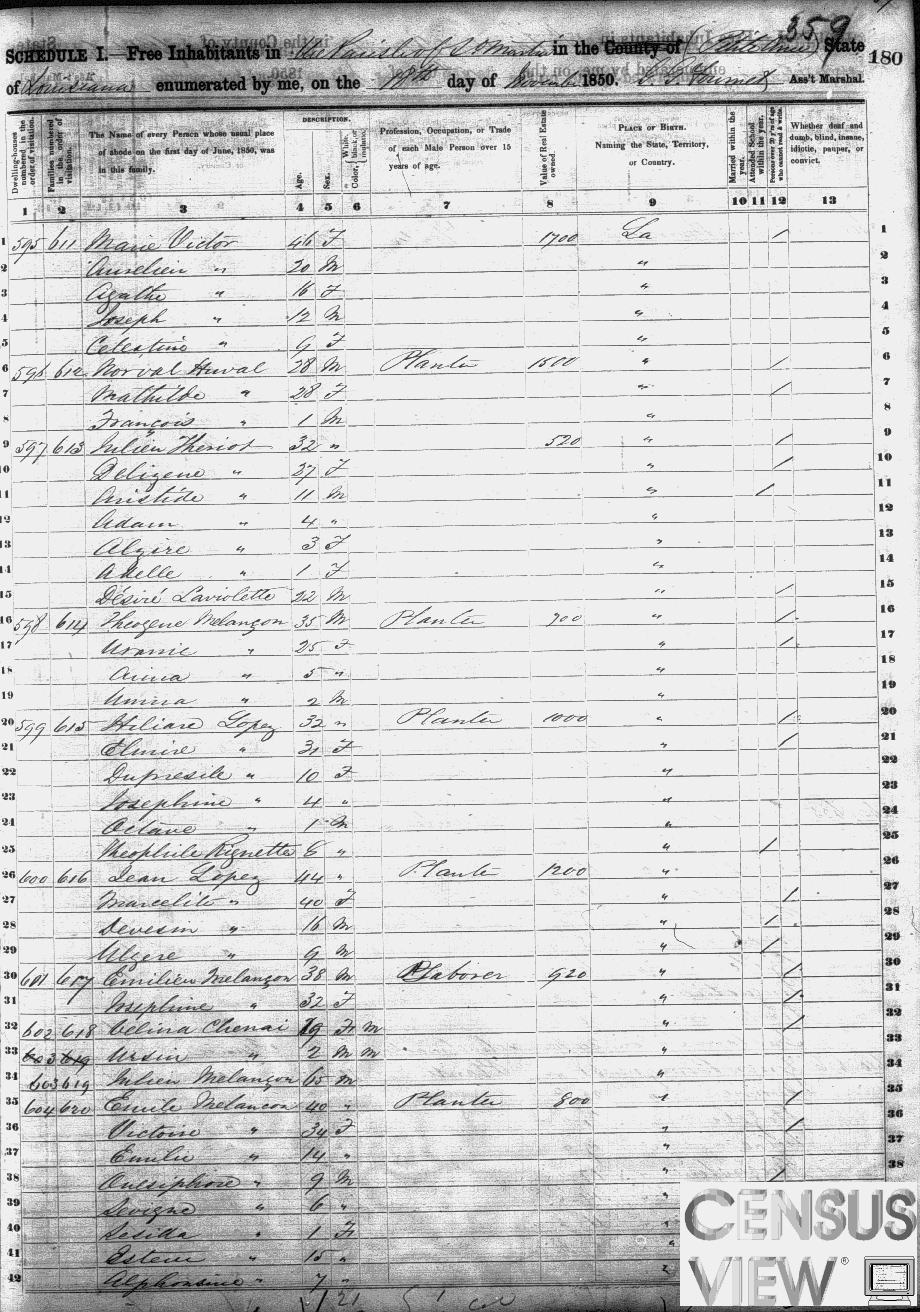 359
SCHEDULE I.—Free Inhabitants in the Parish of St Martin in the County of State
180
of Louisiana enumerated by me, on the 18th day of November 1850. Ass't Marshal.
DESCRIPTION.
Dwelling-houses numbered in the order of visitation.
Families numbered in the order of visitation.
The Name of every Person whose usual place of abode on the first day of June, 1850, was in this family.
Age.
Sex.
Color, White, black, or mulatto.
Profession, Occupation, or Trade of each Male Person over 15 years of age.
Value of Real Estate owned.
PLACE OF BIRTH. Naming the State, Territory, or Country.
Married within the year.
Attended School within the year.
Persons over 20 y'rs of age who cannot read & write.
Whether deaf and dumb, blind, insane, idiotic, pauper, or convict.
1 2 3 4 5 6 7 8 9 10 11 12 13
1 595 611 Marie Victor 46 F 1700 La / 1
2 Aurelien " 20 M " 2
3 Agathe " 16 F " 3
4 Joseph " 12 M " 4
5 Celestine " 9 F " 5
6 596 612 Norval Huval 28 M Planter 1500 " / 6
7 Mathilde " 28 F " / 7
8 François " 1 M " 8
9 597 613 Julien Theriot 32 " 520 " / 9
10 Delizene " 27 F " / 10
11 Aristide " 11 M " / 11
12 Adam " 4 " " 12
13 Alzire " 3 F " 13
14 Adelle " 1 F " 14
15 Désiré Laviolette 22 M " / 15
16 598 614 Theogene Melançon 35 M Planter 700 " / 16
17 Uranie " 25 F " / 17
18 Anna " 5 " " 18
19 " 2 M " 19
20 599 615 Hiliare Lopez 32 " Planter 1000 " / 20
21 Elmire " 31 F " / 21
22 Dupresile " 10 F " 22
23 Josephine " 4 " " 23
24 Octave " 1 M " 24
25 Theophile 6 " " / 25
26 600 616 Jean Lopez 44 " Plante 1200 " 26
27 Marcelite " 40 F " / 27
28 Devesin " 16 M " / 28
29 Ulgere " 9 M " / 29
30 601 617 Emilien Melançon 38 M Laborer 920 " / 30
31 Josephine " 32 F " / 31
32 602 618 Celina Chenai 19 F m " / 32
33 603 619 Ursin " 2 M m " 33
34 603 619 Julien Melançon 65 m " 34
35 604 620 Emile Melancon 40 " Planter 800 " / 35
36 Victoire " 34 F " / 36
37 Emilie " 14 " " 37
38 Onesiphore " 9 M " / 38
39 Sevigne " 6 "
40 " 1 F "
41 " 15 " "
42 Alphonsine " 7 " "
CENSUS
VIEW®